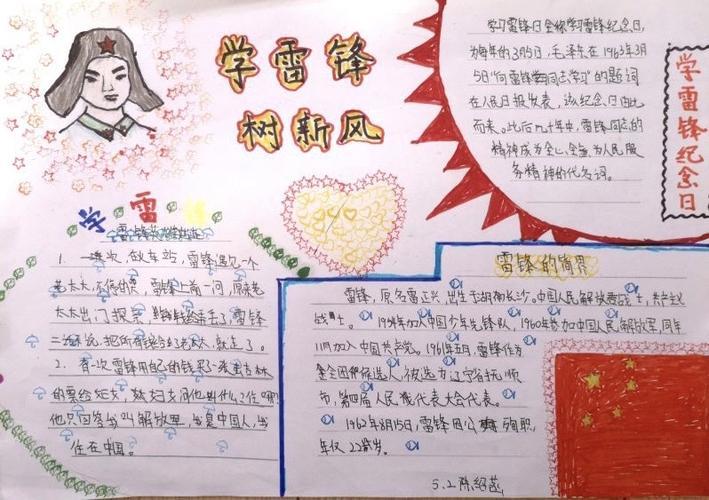 学雷锋
树新风
学习雷锋日全称学习雷锋纪念日,
为每年的3月5日,毛泽东在1963年3月
5日"向雷锋同志学习"的题词
在人民日报发表,该纪念日由此
而来。此后几十年中,雷锋同志的
精神成为全心全意为人民服
务精神的代名词。
学雷锋纪念日
学雷锋
1. 一次,在车站,雷锋遇见一个
老太太,雷锋上前一问,原来老
太太出门探亲,车票和钱丢了,雷锋
二话没说,把所有钱给了老太太,就走了。
2. 有一次雷锋用自己的钱买了一张去吉林
的票给妇女,妇女问他叫什么?住哪?
他只回答: 叫解放军,
住在中国。
雷锋的简界
雷锋,原名雷正兴,出生于湖南长沙,中国人民解放军战士,共产主义
战士。1954年加入中国少年先锋队,1960年参加中国人民解放军,同年
11月加入中国共产党。1961年五月,雷锋作为
候选人,被选为辽宁省抚顺
市,第四届人民代表大会代表。
1962年8月15日,雷锋因公殉职,
年仅22岁。
5.2陈绍